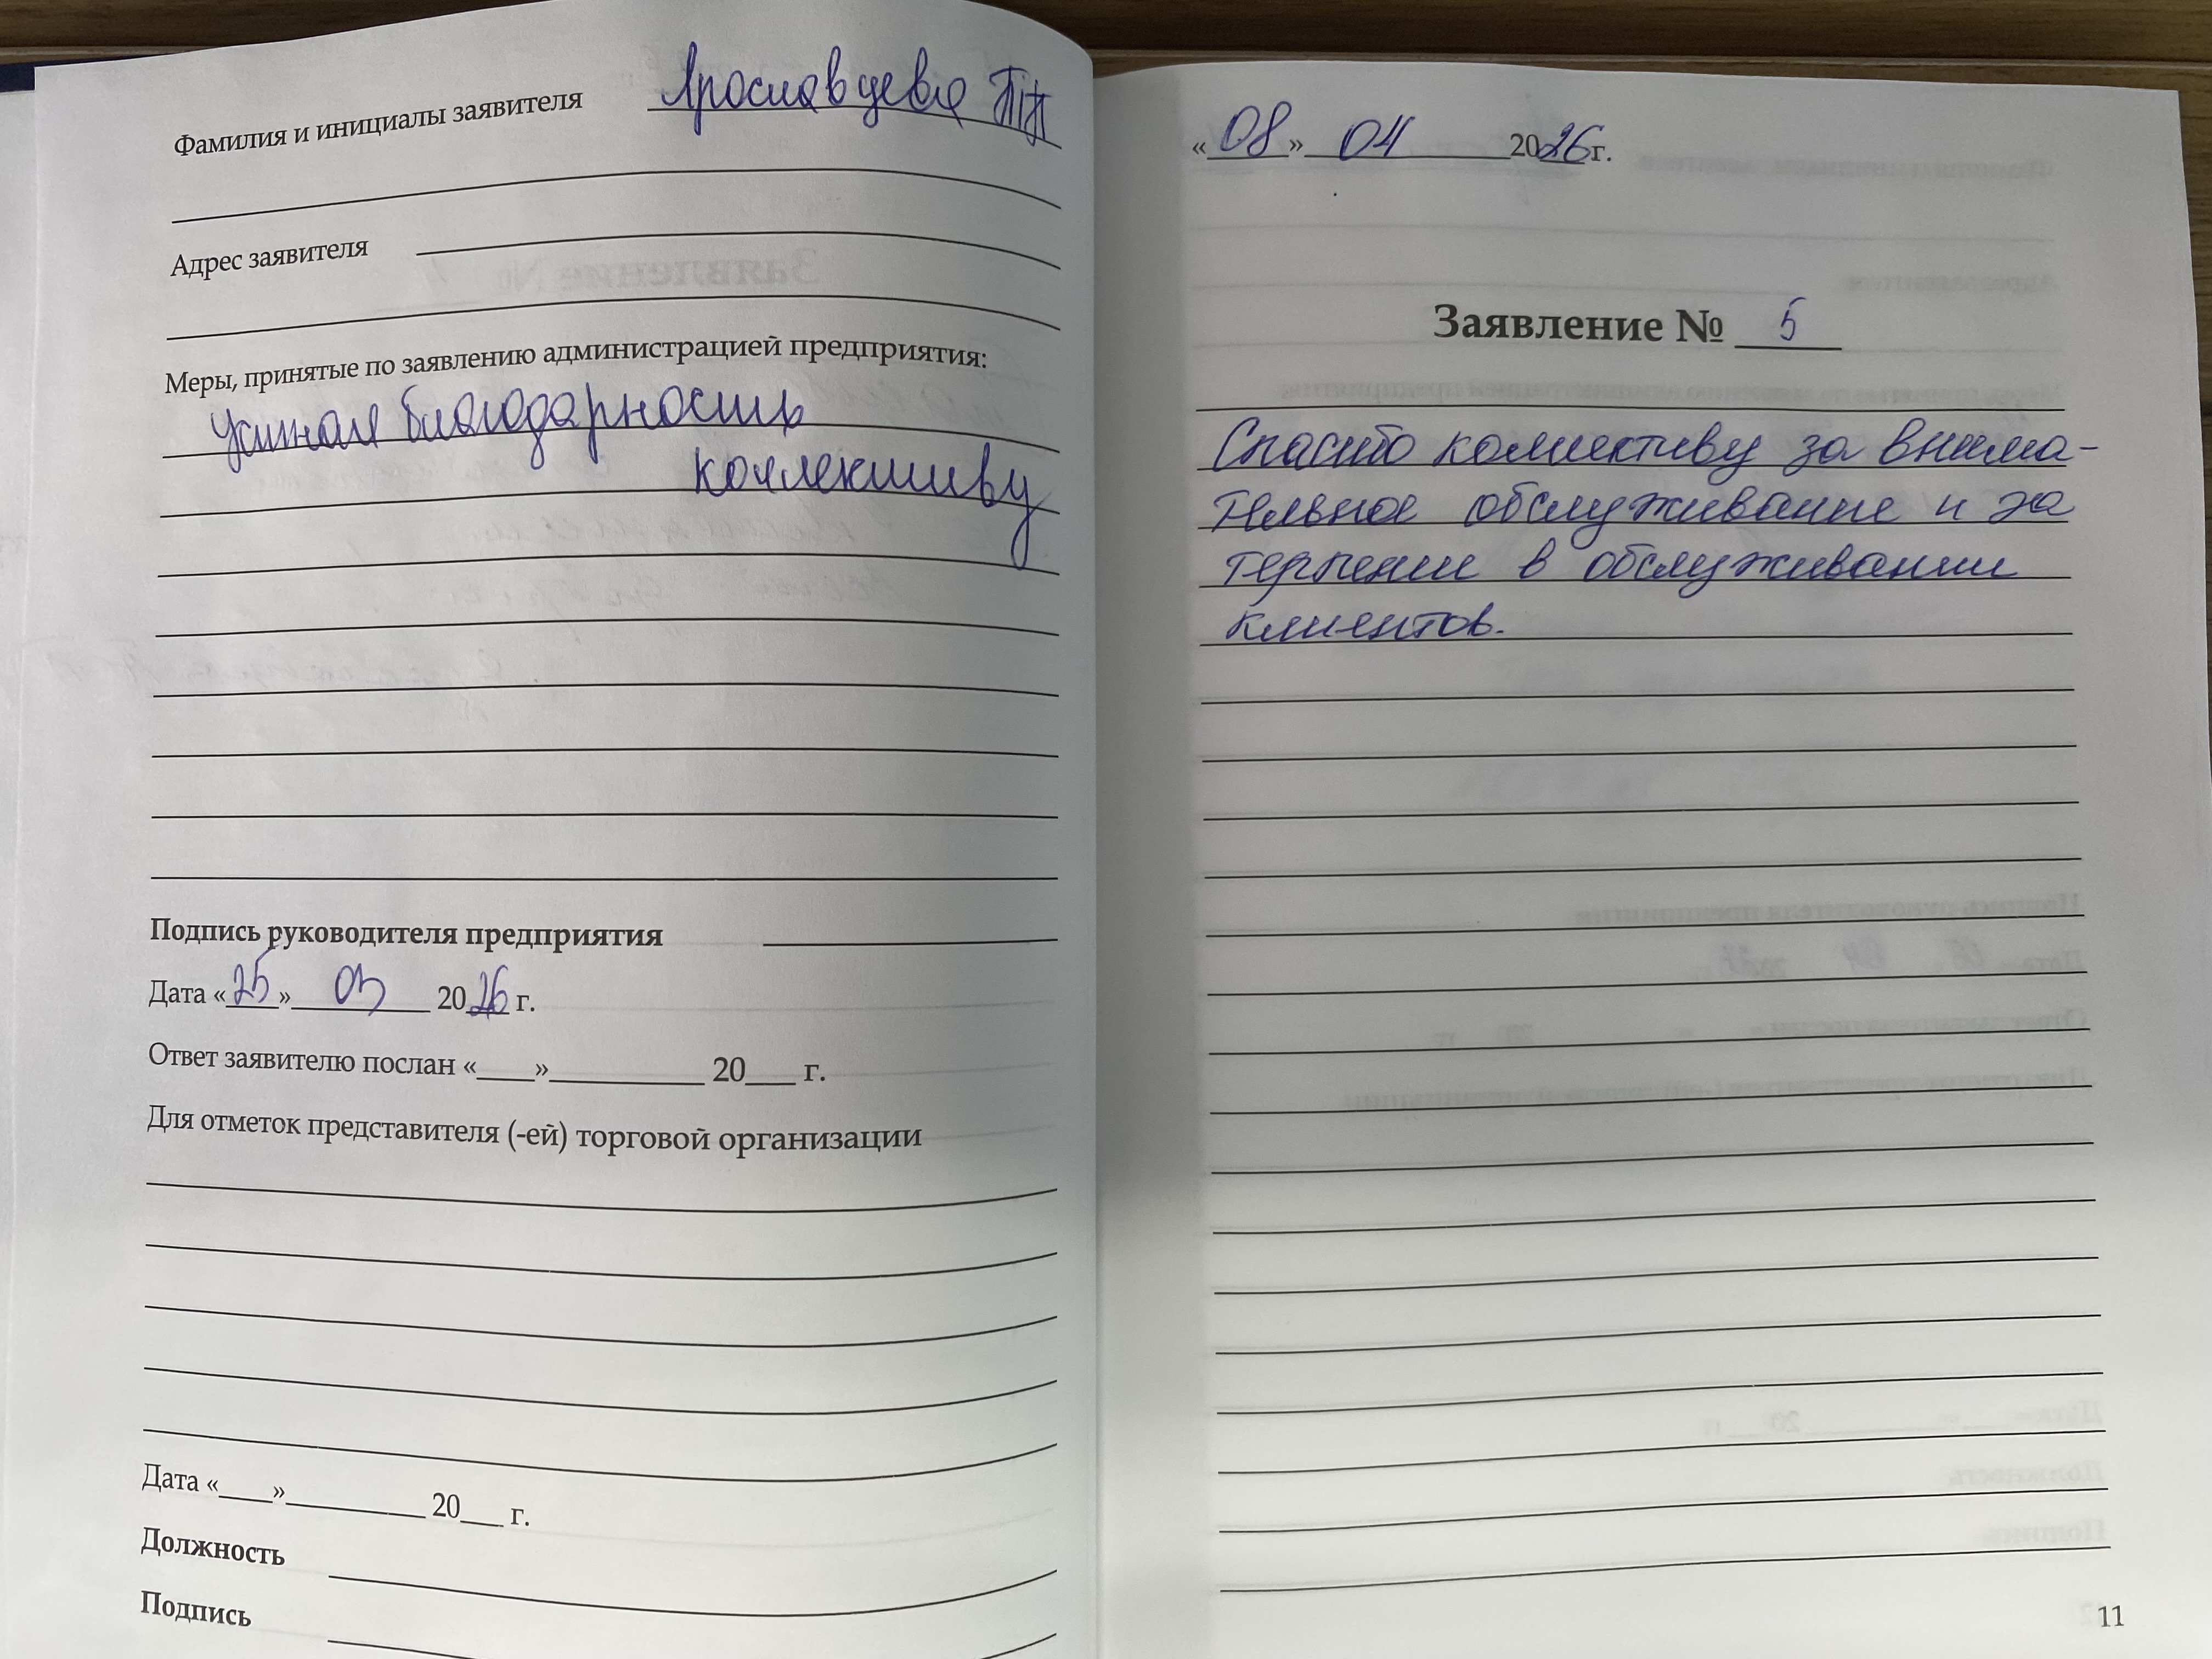 Фамилия и инициалы заявителя Ярославцева ТП
Адрес заявителя
Меры, принятые по заявлению администрацией предприятия:
Устная благодарность
коллективу
Подпись руководителя предприятия
Дата «25» 03 2026 г.
Ответ заявителю послан «___»__________ 20___ г.
Для отметок представителя (-ей) торговой организации
Дата «___»__________ 20___ г.
Должность
Подпись
«08» 04 2026 г.
Заявление № 5
Спасибо коллективу за внима-
тельное обслуживание и за
терпение в обслуживании
клиентов.
11